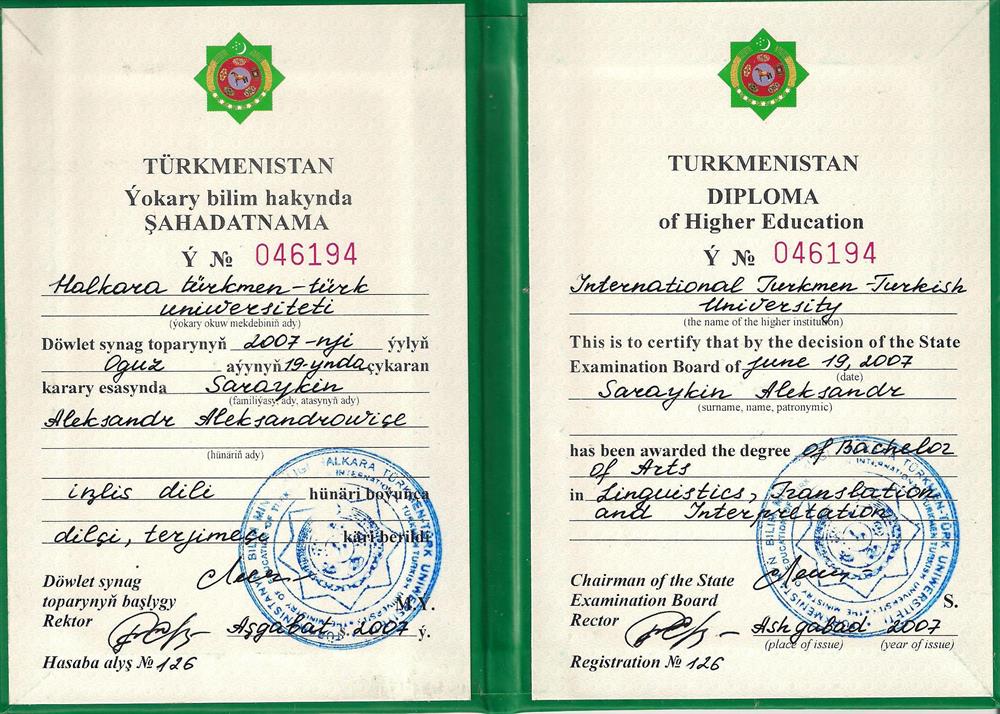 TÜRKMENISTAN
Ýokary bilim hakynda
ŞAHADATNAMA
Ý № 046194
Halkara türkmen-türk
uniwersiteti
(ýokary okuw mekdebiniň ady)
Döwlet synag toparynyň 2007-nji ýylyň
Oguz aýynyň 19-ynda çykaran
karary esasynda Saraykin
(familiýasy, ady, atasynyň ady)
Aleksandr Aleksandrowiçe
(hünäriň ady)
iňlis dili hünäri boýunça
dilçi, terjimeçi käri berildi
Döwlet synag
toparynyň başlygy
M.Ý.
Rektor
Aşgabat ş. 2007 ý.
Hasaba alyş № 126
TURKMENISTAN
DIPLOMA
of Higher Education
Ý № 046194
International Turkmen-Turkish
University
(the name of the higher institution)
This is to certify that by the decision of the State
Examination Board of june 19, 2007
(date)
Saraykin Aleksandr
(surname, name, patronymic)
has been awarded the degree of Bachelor
of Arts
in Linguistics, Translation
and Interpretation
Chairman of the State
Examination Board
S.
Rector
Ashgabad 2007
(place of issue) (year of issue)
Registration № 126